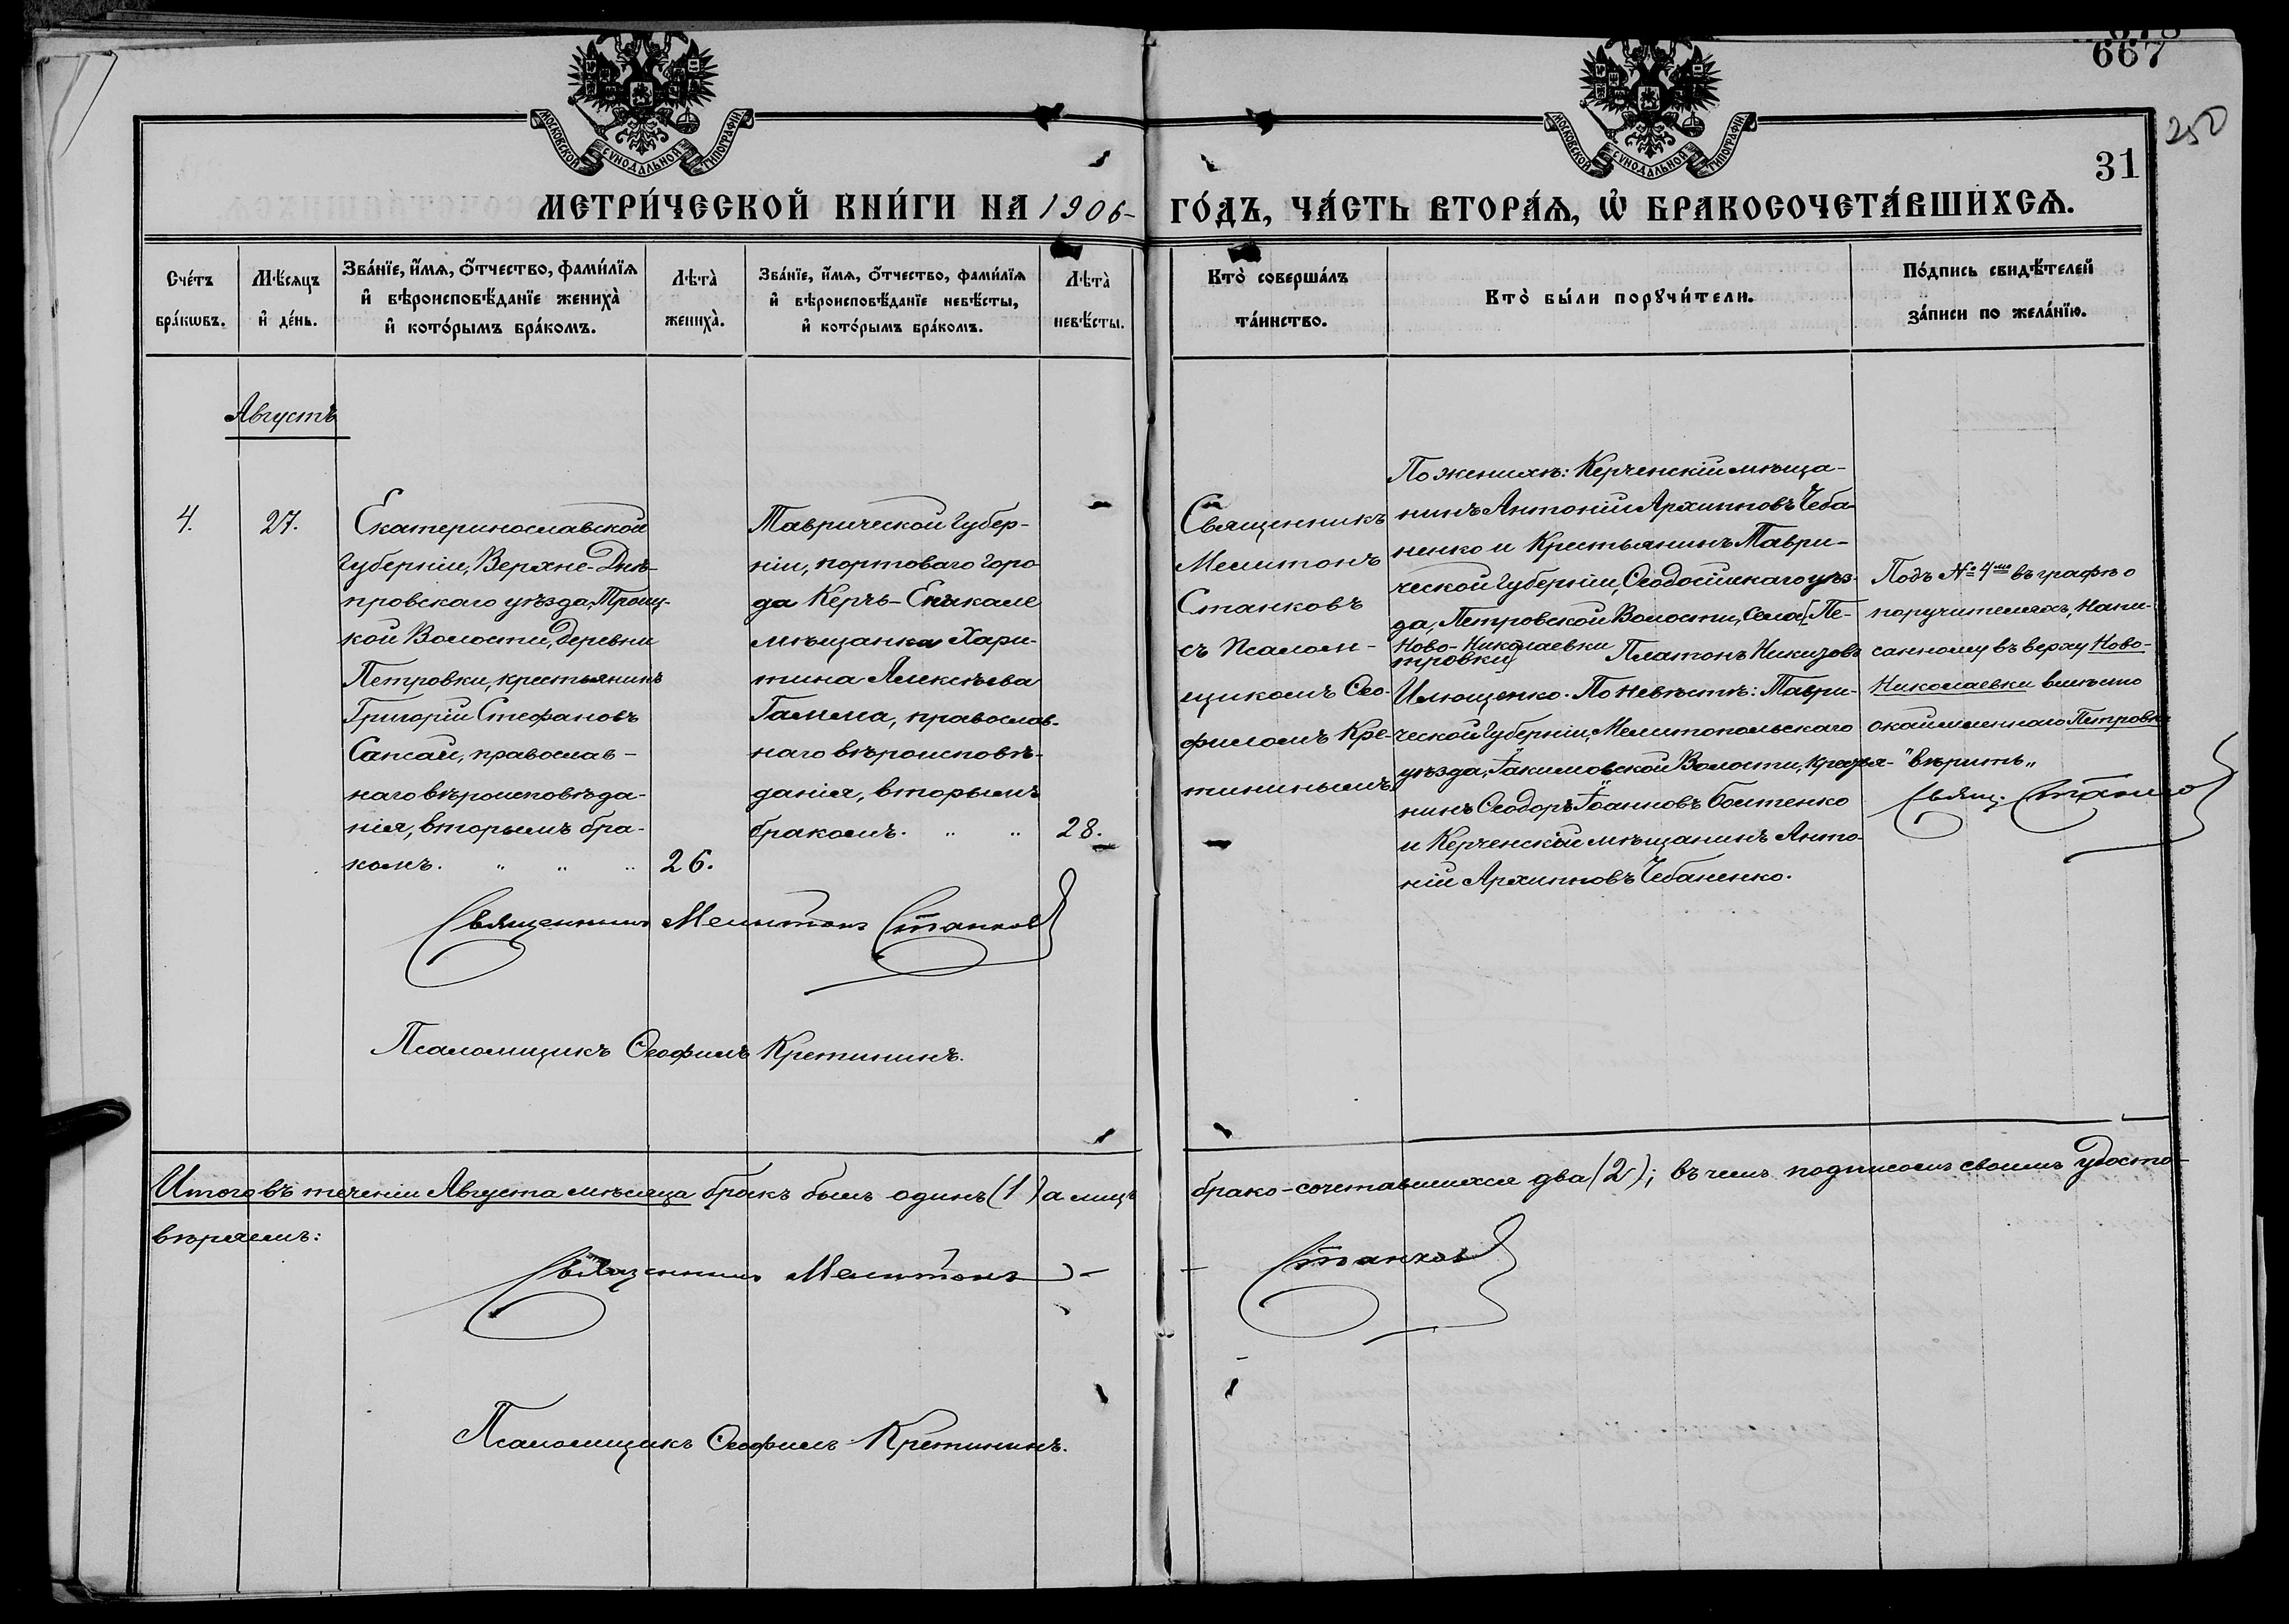 667
250
31
МОСКОВСКОЙ СѴНОДАЛЬНОЙ ТИПОГРАФІИ
МОСКОВСКОЙ СѴНОДАЛЬНОЙ ТИПОГРАФІИ
МЕТРИ́ЧЕСКОЙ КНИ́ГИ НА 1906- ГО́ДЪ, ЧА́СТЬ ВТОРА́Ѧ, Ѽ БРАКОСОЧЕТА́ВШИХСѦ.
Сче́тъ
бра́кѡвъ.
Мѣ́сѧцъ
и҆ де́нь.
Зва́нїе, и҆́мѧ, ѻ҆́тчество, фами́лїѧ
и҆ вѣроисповѣ́данїе жениха̀
и҆ кото́рымъ бра́комъ.
Лѣта̀
жениха̀.
Зва́нїе, и҆́мѧ, ѻ҆́тчество, фами́лїѧ
и҆ вѣроисповѣ́данїе невѣ́сты,
и҆ кото́рымъ бра́комъ.
Лѣта̀
невѣ́сты.
Кто̀ соверша́лъ
та́инство.
Кто̀ бы́ли порꙋчи́тели.
По́дпись свидѣ́телей
за́писи по жела́нїю.
Августъ
4.
27.
Екатеринославской
Губерніи, Верхне-Днѣ-
провскаго уѣзда, Троиц-
кой Волости, деревни
Петровки, крестьянинъ
Григорій Стефановъ
Сапсай, православ-
наго вѣроисповѣда-
нія, вторымъ бра-
комъ. " " "
26.
Таврической Губер-
ніи, портоваго горо
да Керчь-Еникале
мѣщанка Хари-
тина Алексѣева
Гамма, православ-
наго вѣроисповѣ-
данія, вторымъ
бракомъ. " "
28.
Священникъ
Мелитонъ
Станковъ
съ псалом-
щикомъ Ѳео-
филомъ Кре-
тининымъ.
По женихѣ: Керченскій мѣща-
нинъ Антоній Архиповъ Чеба-
ненко и Крестьянинъ Таври-
ческой Губерніи, Ѳеодосійскаго уѣз-
да, Петровской Волости, Села [Пе-
Ново-Николаевки
тровки] Платонъ Никизовъ
Илющенко. По невѣстѣ: Таври-
ческой Губерніи, Мелитопольскаго
уѣзда, Іакимовской Волости, крестья-
нинъ Ѳеодоръ Іоанновъ Боитенко
и Керченскій мѣщанинъ Анто-
ній Архиповъ Чебаненко.
Подъ № 4мъ въ графѣ о
поручителяхъ, напи-
санному въ верху Ново-
Николаевки вмѣсто
окаймленнаго Петровки
"вѣрить„
Свящ. Станко
Священникъ Мелитонъ Станковъ
Псаломщикъ Ѳеофилъ Кретининъ.
Итого въ теченіи Августа мѣсяца бракъ былъ одинъ (1) а лицъ брако-сочетавшихся два (2); въ чемъ подписомъ своимъ удосто-
вѣряемъ:
Священникъ Мелитонъ - - Станковъ
Псаломщикъ Ѳеофилъ Кретининъ.